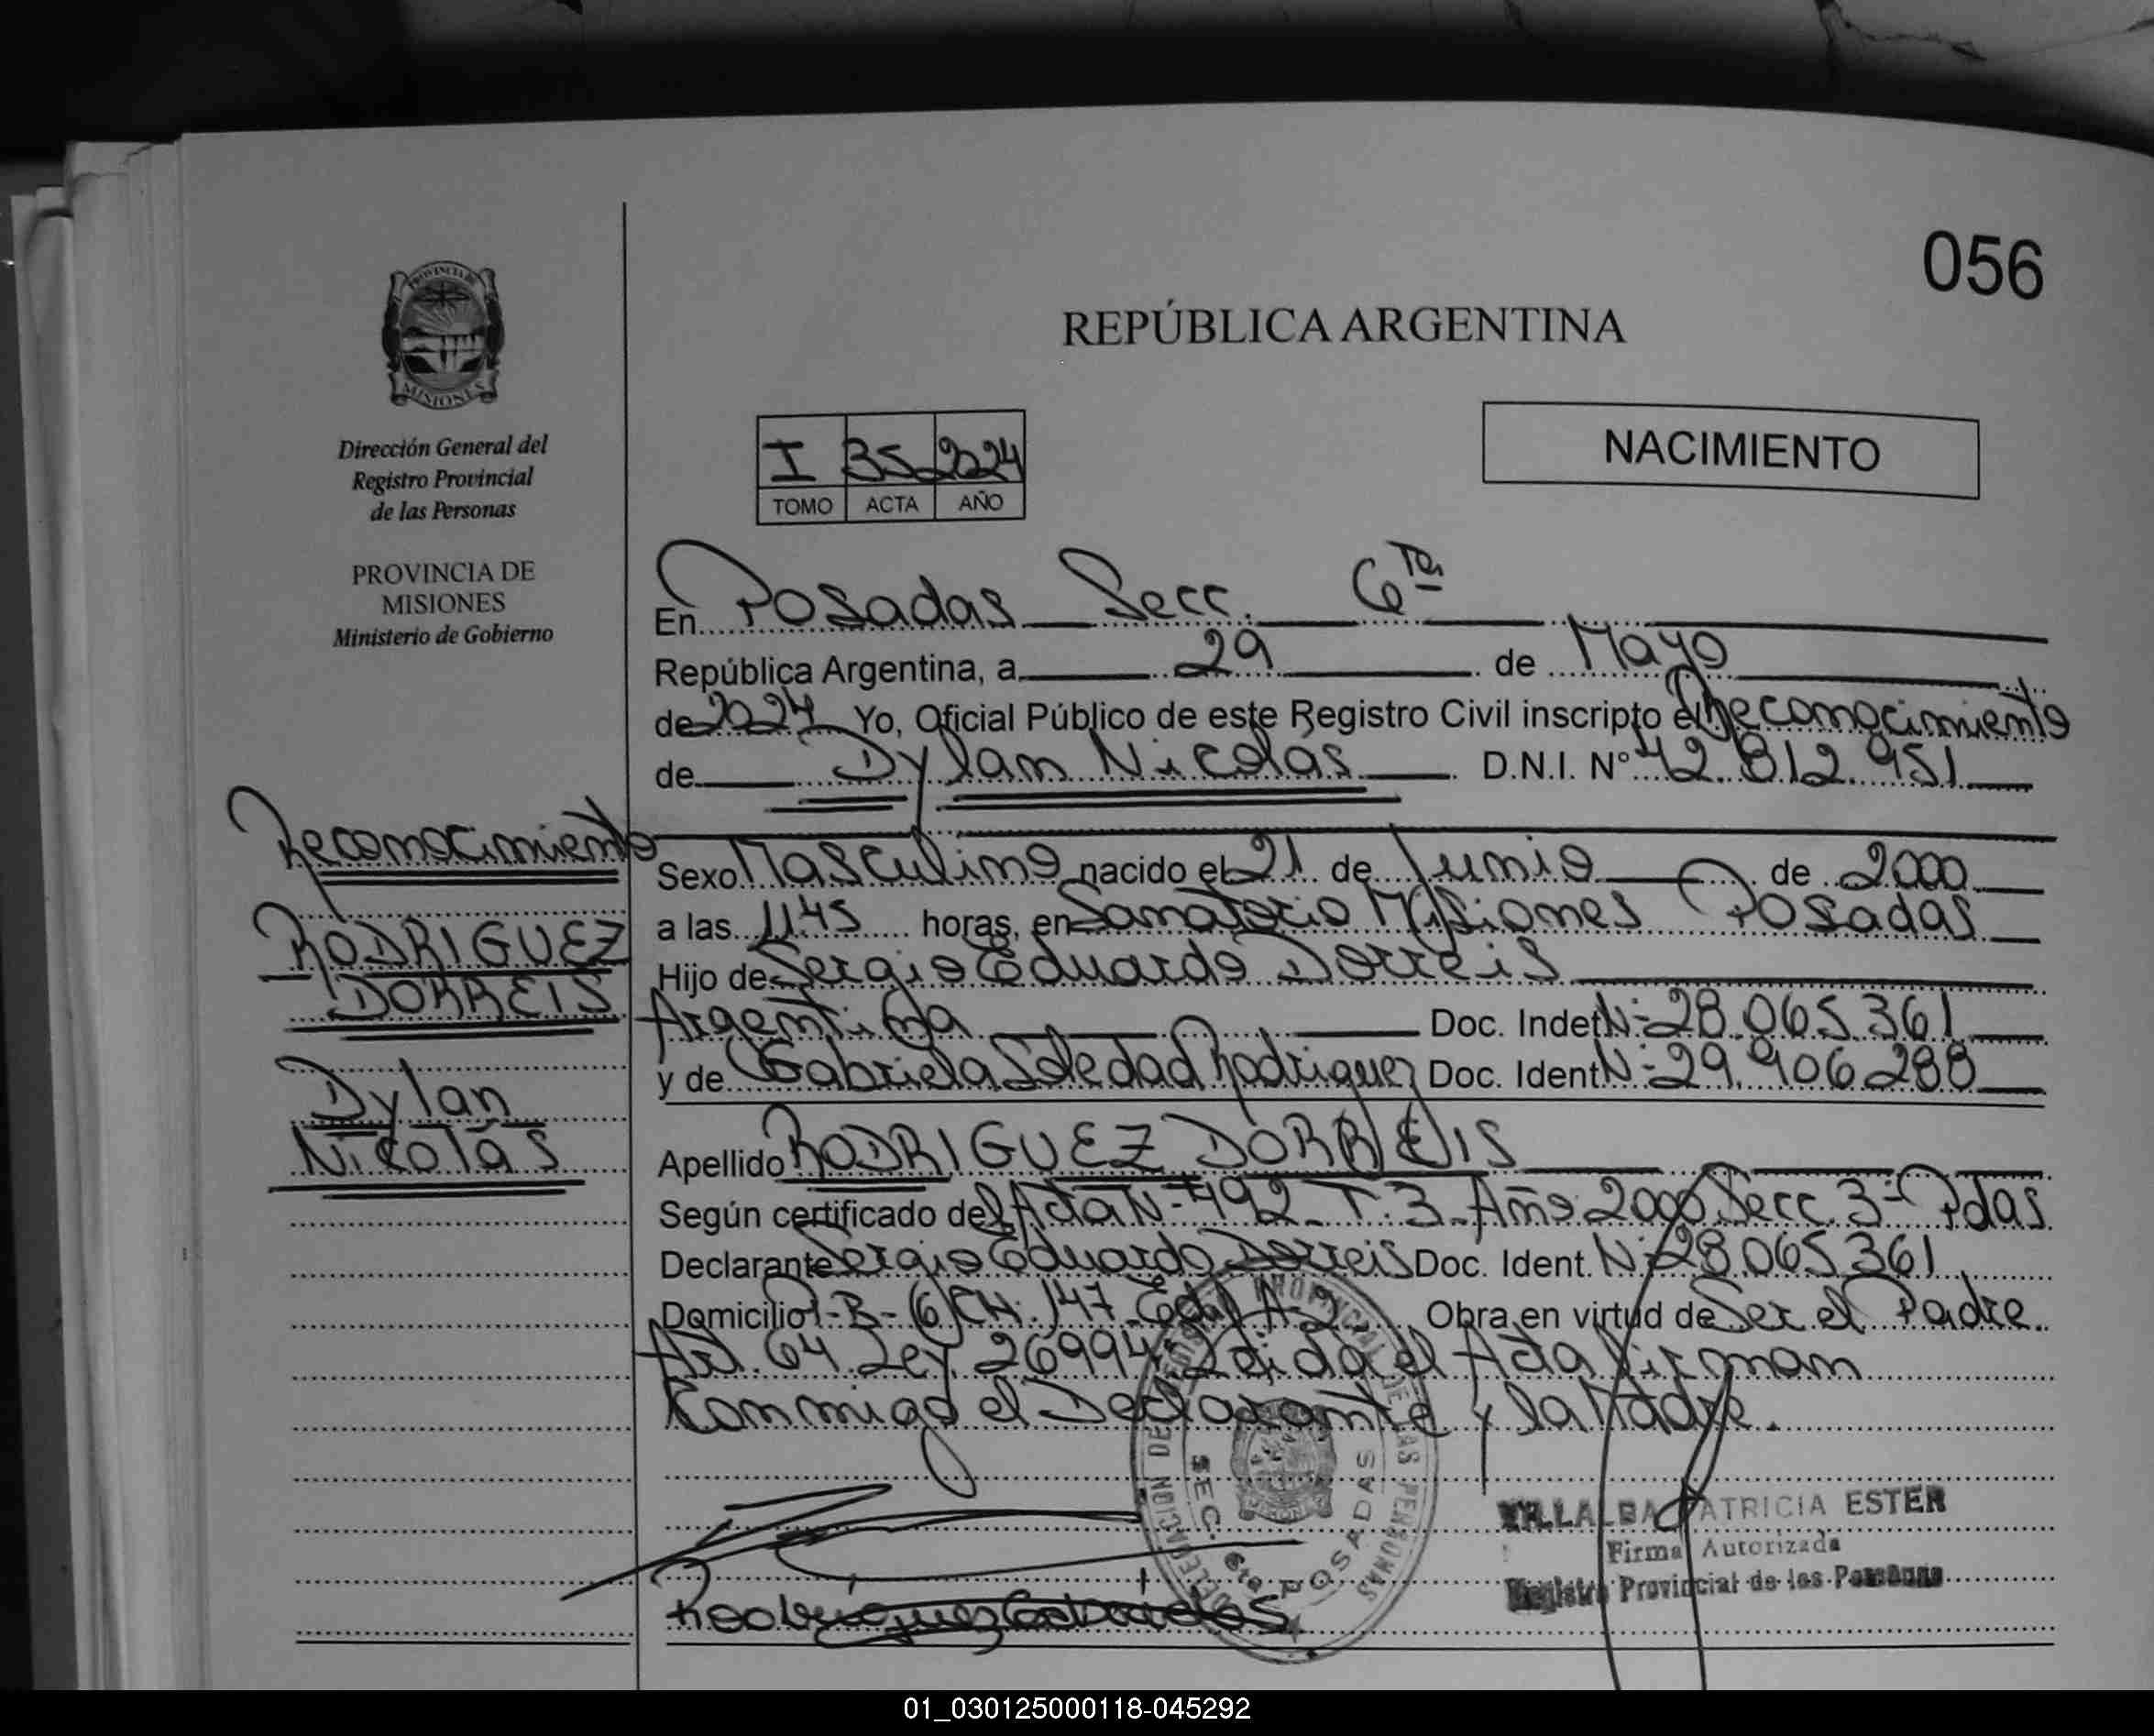 056
REPÚBLICA ARGENTINA
PROVINCIA DE
MISIONES
Dirección General del
Registro Provincial
de las Personas
PROVINCIA DE
MISIONES
Ministerio de Gobierno
I 35 2024
TOMO ACTA AÑO
NACIMIENTO
En Posadas Secc. 6ta
República Argentina, a 29 de Mayo
de 2024 Yo, Oficial Público de este Registro Civil inscripto el Reconocimiento
de Dylan Nicolás D.N.I. Nº 42.812.951
Sexo Masculino nacido el 21 de Junio de 2000
a las 11:45 horas, en Sanatorio Misiones Posadas
Hijo de Sergio Eduardo Dorreis
Argentina Doc. Indet Nº 28.065.361
y de Gabriela Soledad Rodriguez Doc. Ident Nº 29.906.288
Apellido RODRIGUEZ DORREIS
Según certificado del Acta Nº 492 T. 3 Año 2000 Secc. 3ª Pdas
Declarante Sergio Eduardo Dorreis Doc. Ident. Nº 28.065.361
Domicilio 1-B-(6) CH: 147 Edif A-2 Obra en virtud de Ser el Padre
Art. 64 Ley 26994 Leida el Acta firman
Conmigo el Declarante y la Madre.
Reconocimiento
RODRIGUEZ
DORREIS
Dylan
Nicolás
DELEGACION DE REGISTRO PROVINCIAL DE LAS PERSONAS
SEC. 6ta POSADAS
VILLALBA PATRICIA ESTER
Firma Autorizada
Registro Provincial de las Personas
01_030125000118-045292